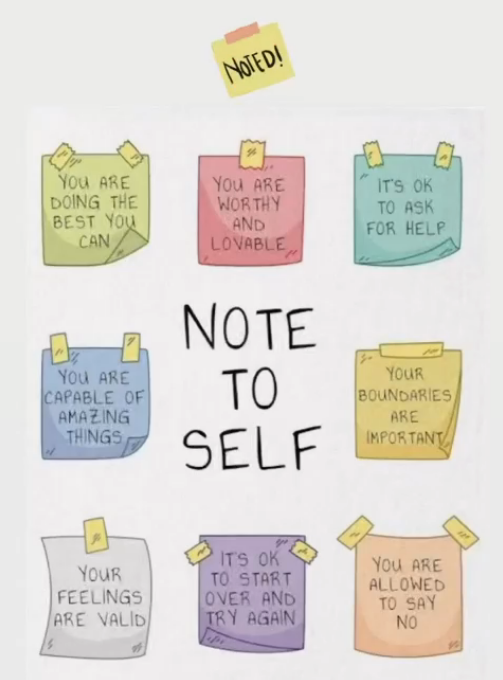 NOTED!
YOU ARE
DOING THE
BEST YOU
CAN
YOU ARE
WORTHY
AND
LOVABLE
IT'S OK
TO ASK
FOR HELP
NOTE
TO
SELF
YOU ARE
CAPABLE OF
AMAZING
THINGS
YOUR
BOUNDARIES
ARE
IMPORTANT
YOUR
FEELINGS
ARE VALID
IT'S OK
TO START
OVER AND
TRY AGAIN
YOU ARE
ALLOWED
TO SAY
NO